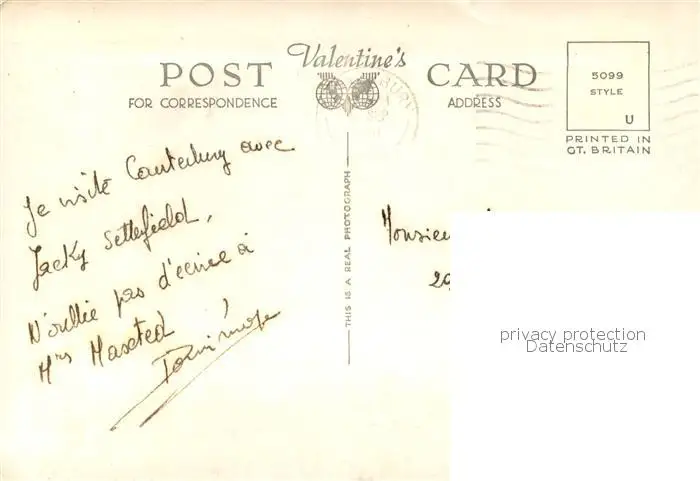 Valentine's
POST CARD
FOR CORRESPONDENCE
ADDRESS
5099
STYLE
U
PRINTED IN
GT. BRITAIN
THIS IS A REAL PHOTOGRAPH
Je visite Canterbury avec
Jacky Setterfield,
N'oublie pas d'écrire à
Mrs Maxted
Monsieur
29
privacy protection
Datenschutz